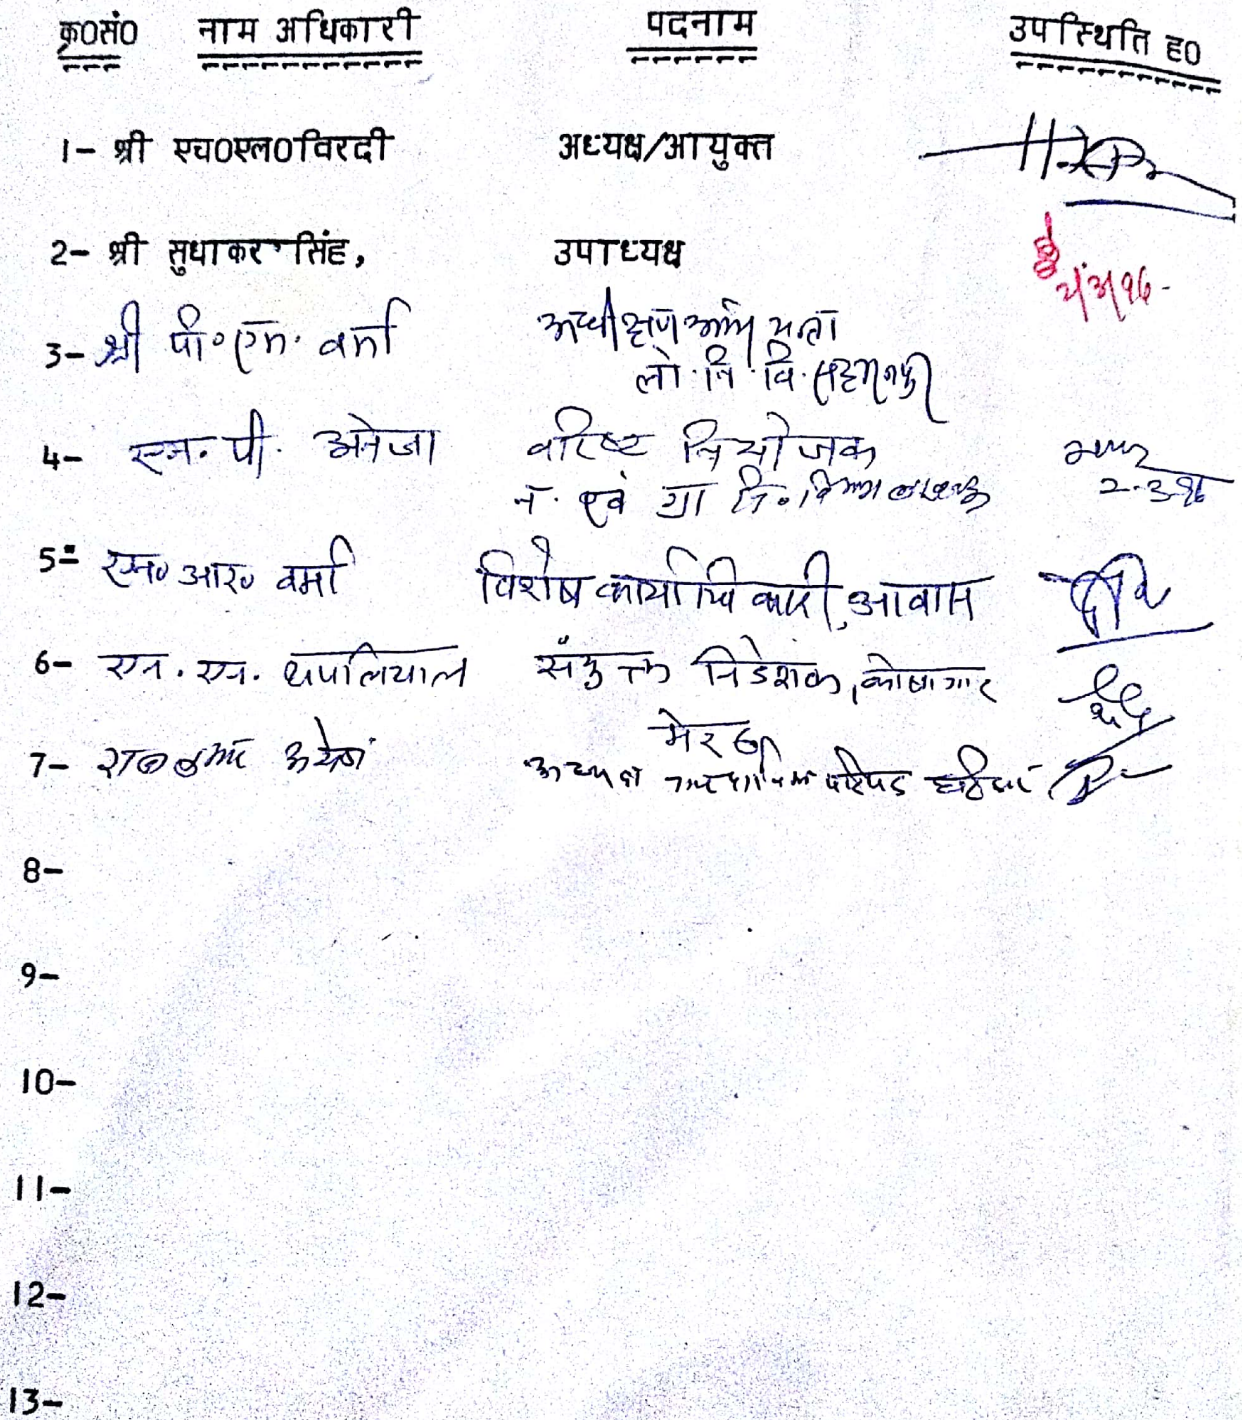 क्र0सं0 नाम अधिकारी पदनाम उपस्थिति ह0
1- श्री एच0एल0विरदी अध्यक्ष/आयुक्त
2- श्री सुधाकर सिंह, उपाध्यक्ष
3- श्री पी॰एन. वर्मा अधीक्षण अभियन्ता
लो. नि. वि. सहारनपुर
4- एन. पी. अनेजा वरिष्ट नियोजक
न. एवं ग्रा नि॰
2.3.96
5- एम॰ आर॰ वर्मा विशेष कार्याधिकारी, आवास
6- एन. एन. थपलियाल संयुक्त निदेशक, कोषागार
मेरठ
7-
8-
9-
10-
11-
12-
13-